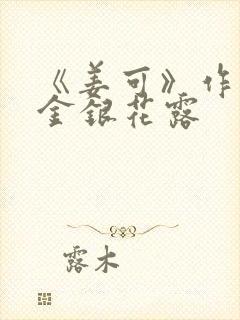 《姜可》作
金银花露
露木